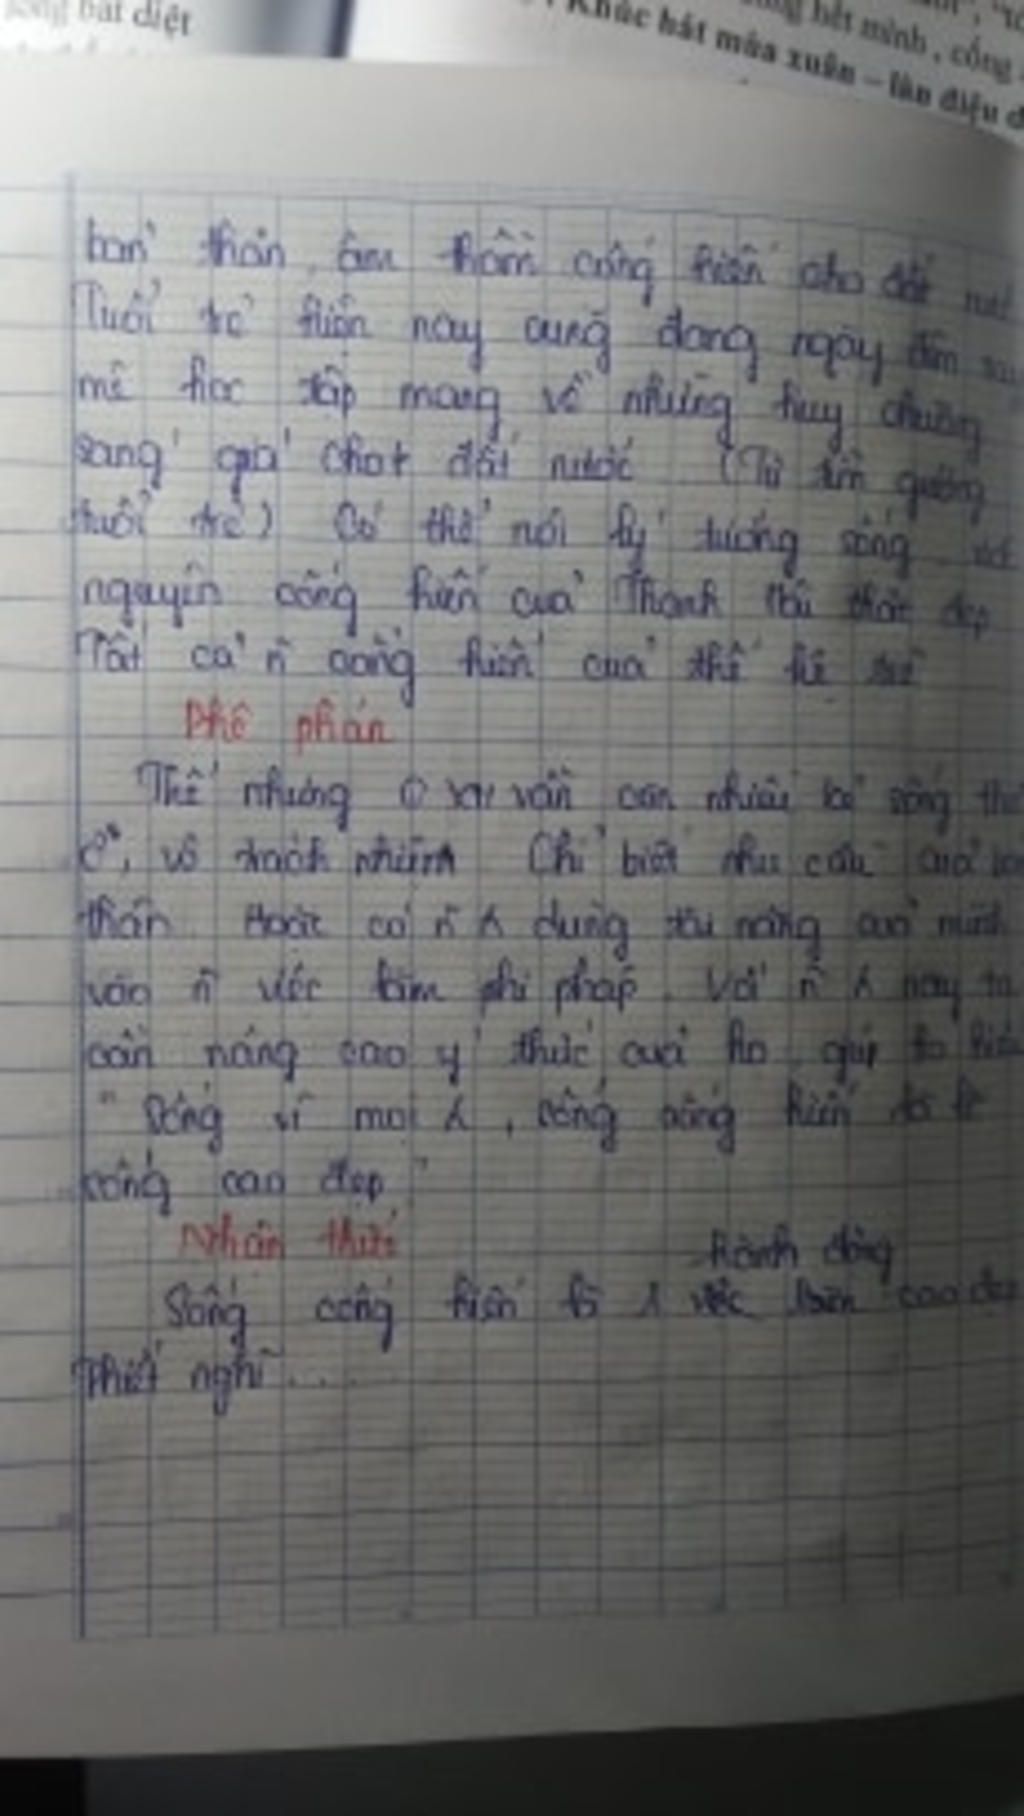 sống bất diệt
hết mình , cống
Khúc hát mùa xuân – làn điệu đ
bản thân, âm thầm cống hiến cho đất nước
Tuổi trẻ hiện nay cũng đang ngày đêm
mê học tập mang về những huy chương
sáng giá cho đất nước (Từ tấm gương
tuổi trẻ) Có thể nói lý tưởng sống ước
nguyện cống hiến của Thanh Hải thật đẹp
Tất cả n~ cống hiến của thế hệ trẻ
Phê phán
Thế nhưng vẫn còn nhiều kẻ sống
vô trách nhiệm Chỉ biết nhu cầu của
thân. Hoặc có n~ dùng tài năng của mình
vào n~ việc làm phi pháp. Với n~ này ta
cần nâng cao ý thức của họ, giúp họ hiểu
" Sống vì mọi , sống cống hiến là lẽ
sống cao đẹp "
Nhận thức
hành động
Sống cống hiến là 1 việc làm cao đẹp
Thiết nghĩ ...